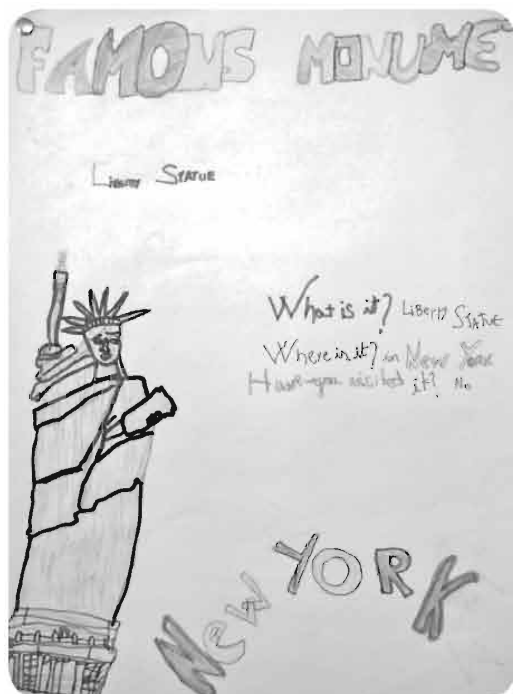 FAMOUS MONUME
LIBERTY STATUE
What is it? LIBERTY STATUE
Where is it? in New York
Have you visited it? No
New YORK